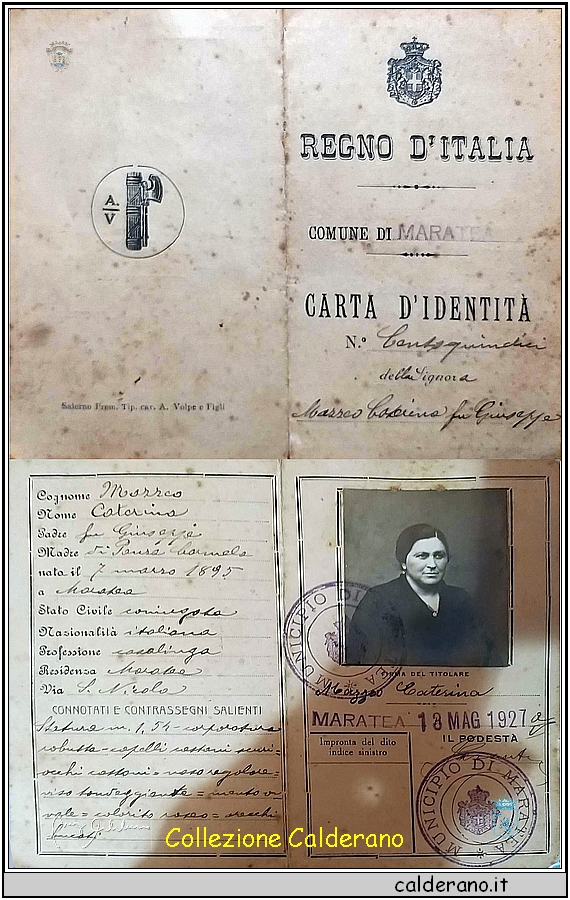 REGNO D'ITALIA
COMUNE DI MARATEA
CARTA D'IDENTITÀ
N.° Centoquindici
della Signora
Mazzeo Caterina fu Giuseppe
A.
V
Salerno Prem. Tip. cav. A. Volpe e Figli
Cognome Mazzeo
Nome Caterina
Padre fu Giuseppe
Madre di Carmela
nata il 7 marzo 1895
a Maratea
Stato Civile coniugata
Nazionalità italiana
Professione casalinga
Residenza Maratea
Via S. Nicola
CONNOTATI E CONTRASSEGNI SALIENTI
Statura m. 1,54 - corporatura
robusta - capelli castani scuri -
occhi castani = naso regolare =
viso tondeggiante = mento o-
vale = colorito roseo = orecchi
MUNICIPIO DI MARATEA
FIRMA DEL TITOLARE
Mazzeo Caterina
MARATEA 13 MAG 1927
IL PODESTÀ
Impronta del dito
indice sinistro
MUNICIPIO DI MARATEA
Collezione Calderano
calderano.it